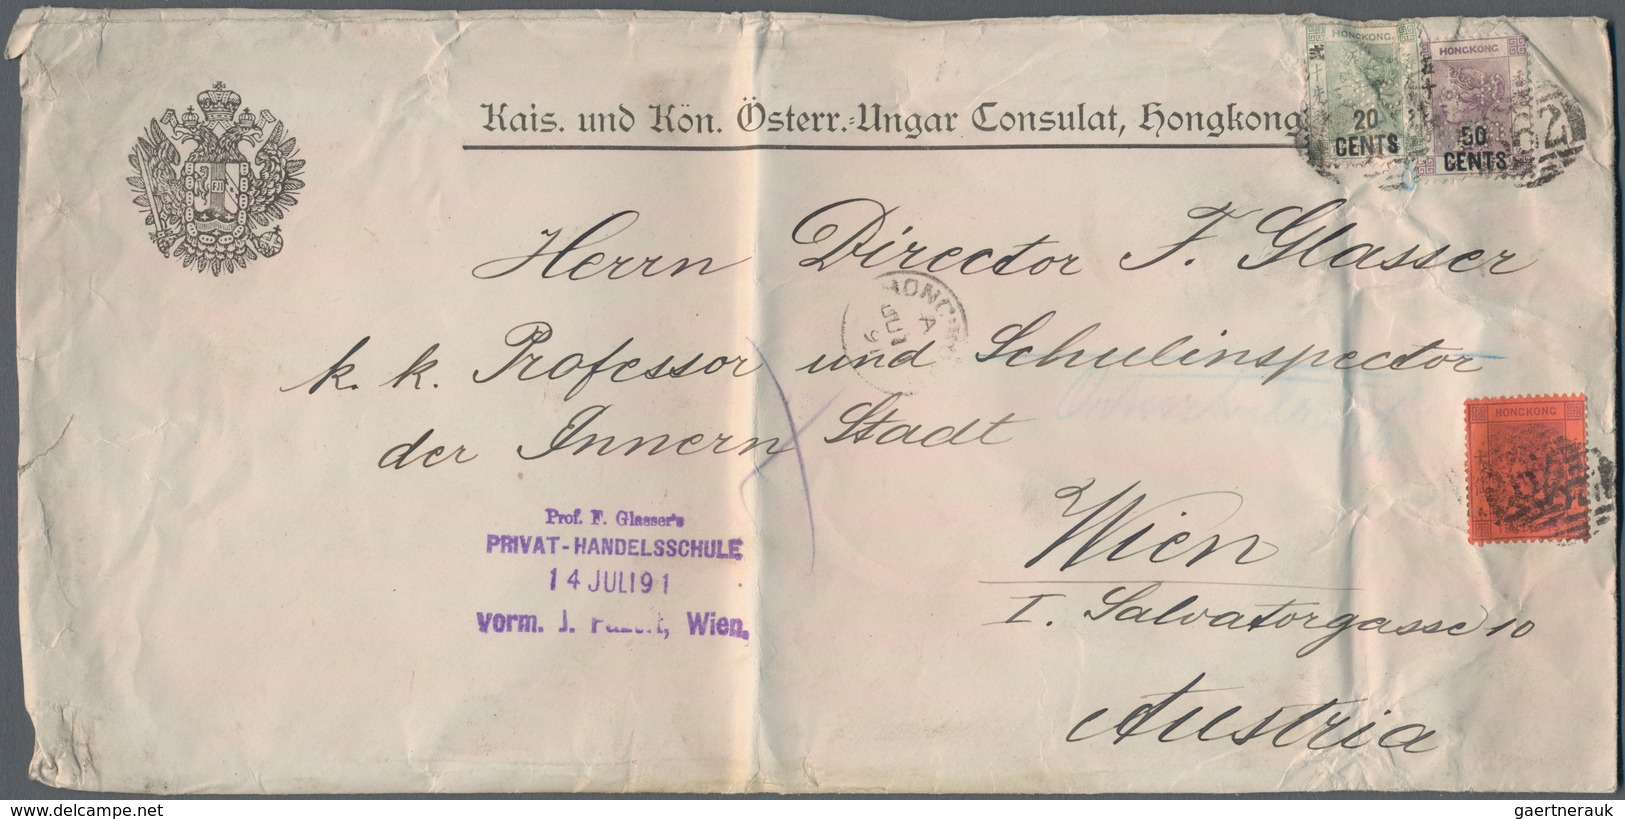 Kais. und Kön. Österr.-Ungar Consulat, Hongkong
HONGKONG
20
CENTS
HONGKONG
50
CENTS
Herrn Director F. Glasser
k. k. Professor und Schulinspector
der Innern Stadt
Wien
I. Salvatorgasse 10
Austria
HONGKONG
A
Prof. F. Glasser's
PRIVAT-HANDELSSCHULE
14 JULI 91
vorm. J. Wien.
gaertnerauk